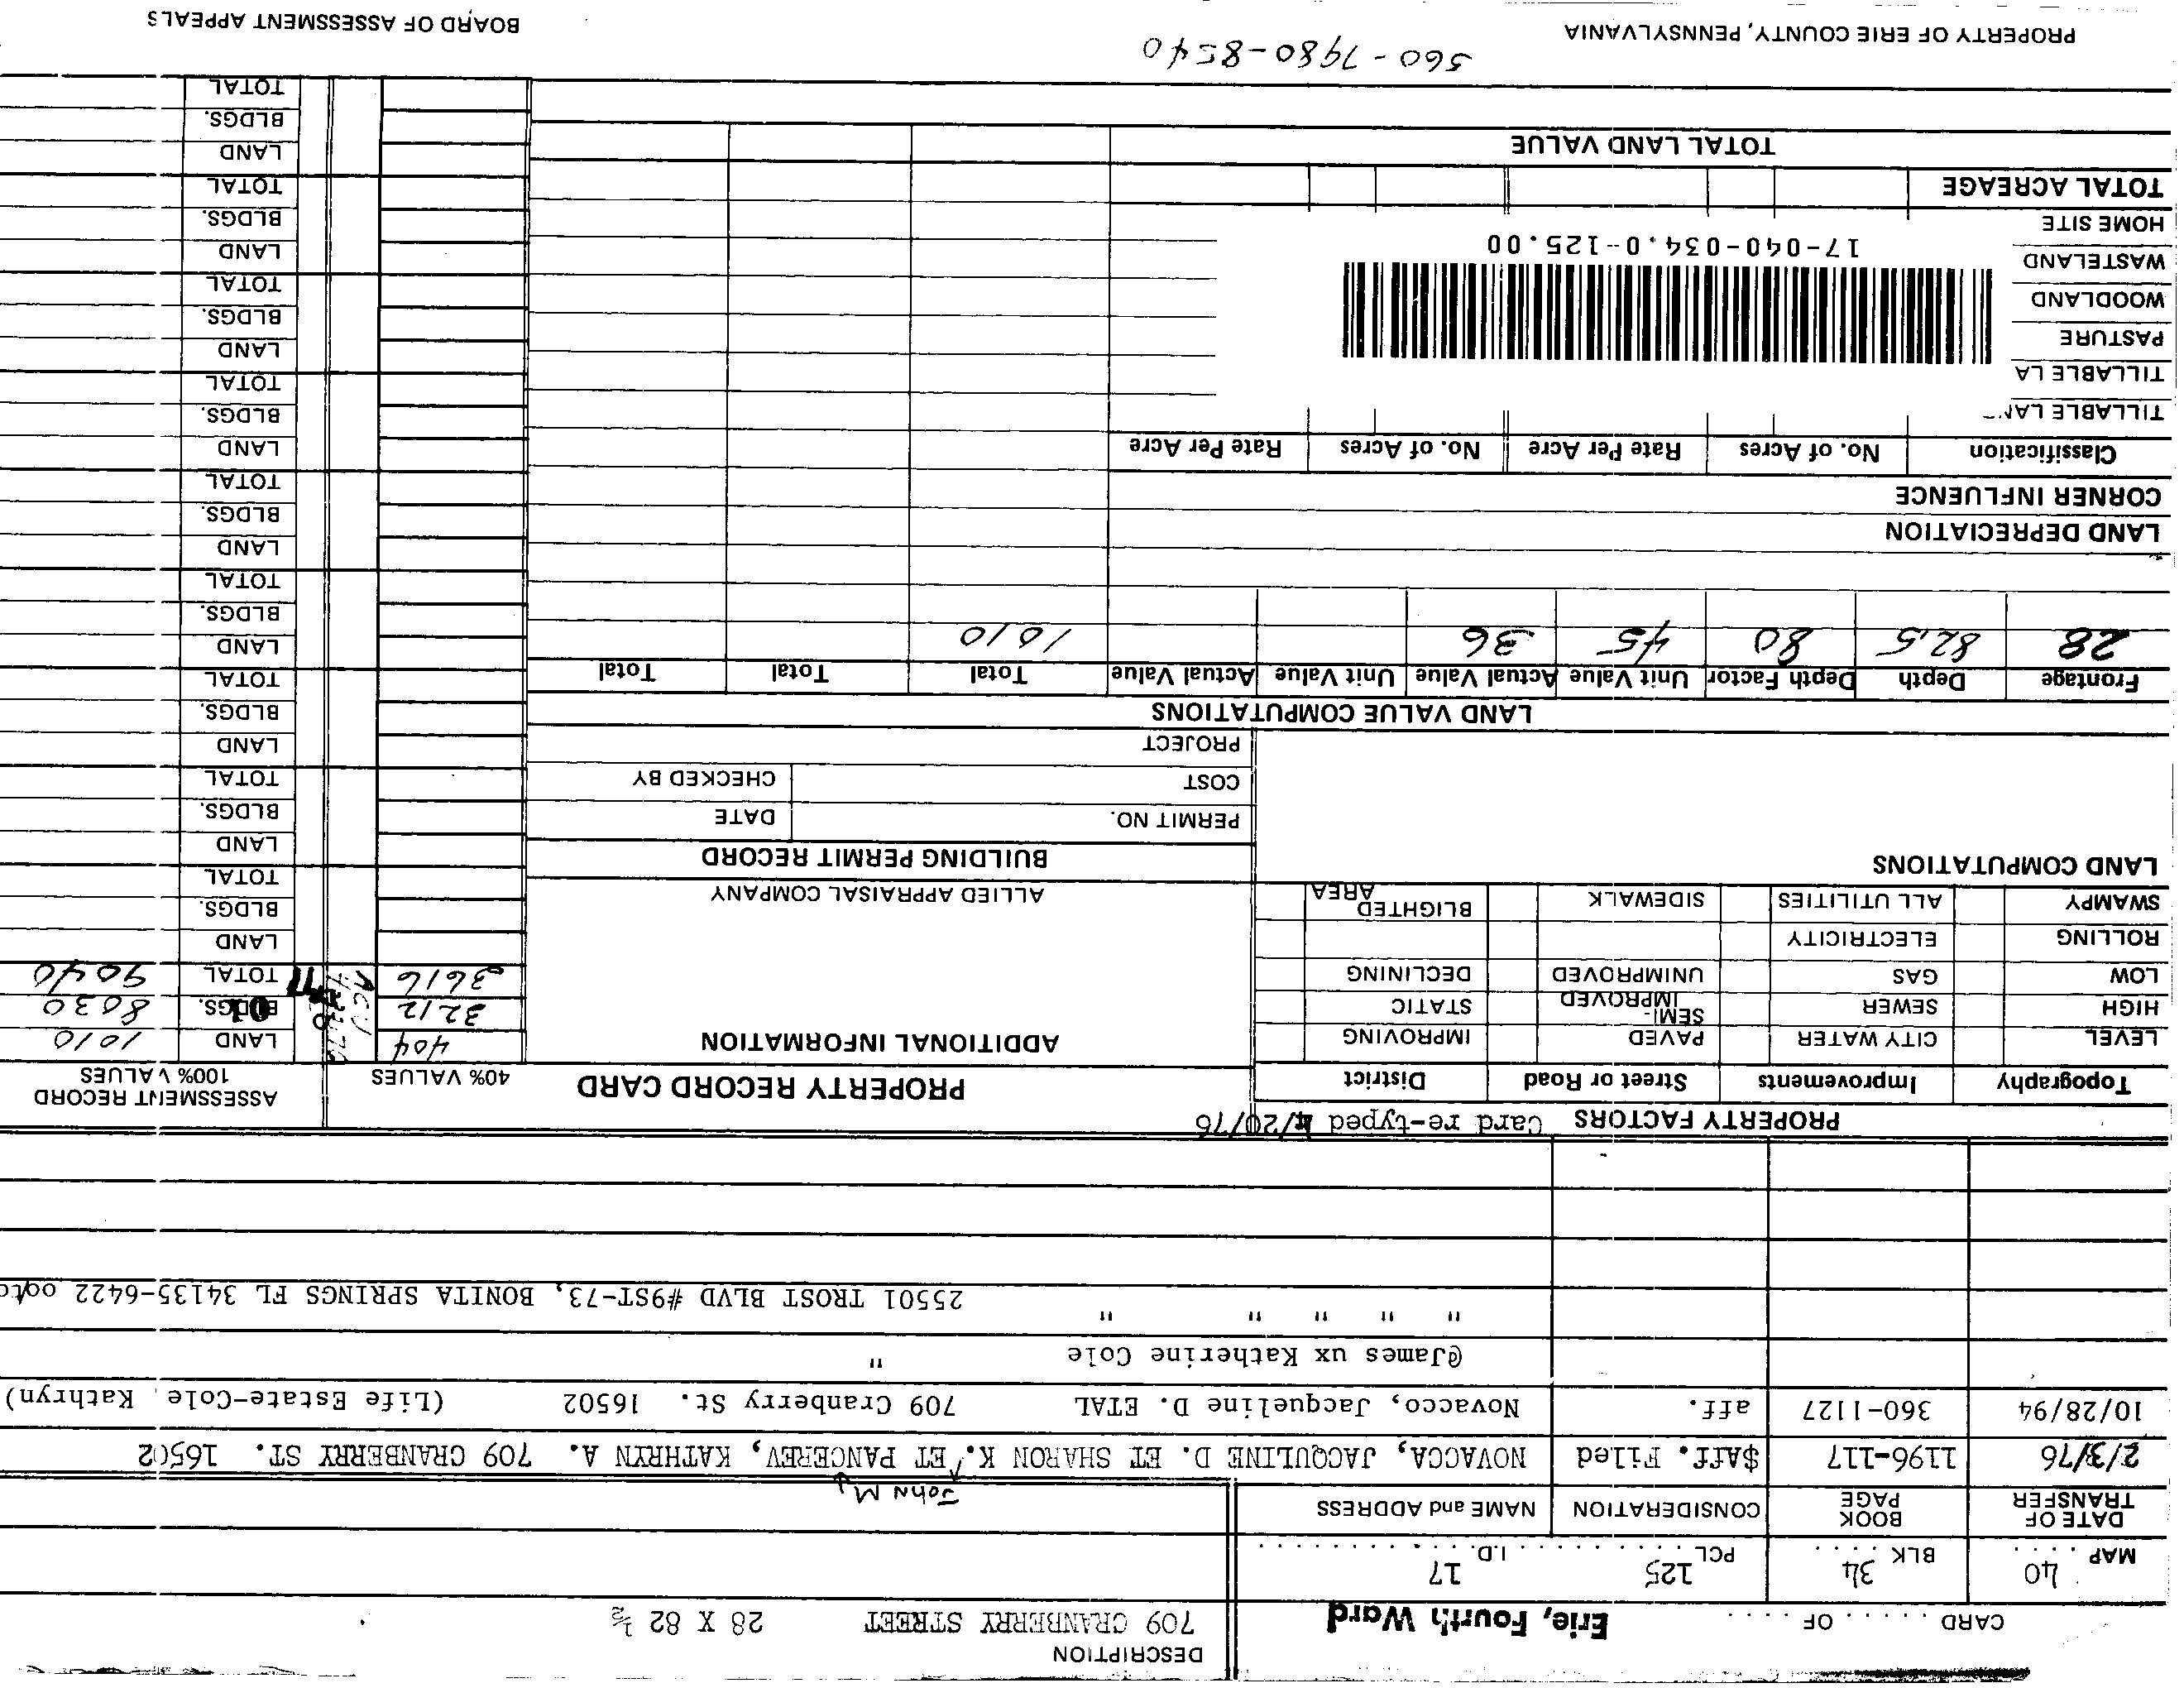 DESCRIPTION
CARD . . . . . . OF . . . .
Erie, Fourth Ward
709 CRANBERRY STREET 28 X 82 ½
MAP 40 BLK 34 PCL 125 I.D. 17
DATE OF TRANSFER BOOK PAGE CONSIDERATION NAME and ADDRESS
John M
2/3/76 1196-117 $Aff. Filed NOVACCA, JACQULINE D. ET SHARON K. ET PANCEREV, KATHRYN A. 709 CRANBERRY ST. 16502
10/28/94 360-1127 aff. Novacco, Jacqueline D. ETAL 709 Cranberry St. 16502 (Life Estate-Cole, Kathryn)
@James ux Katherine Cole "
" " " " " 25501 TROST BLVD #9ST-73, BONITA SPRINGS FL 34135-6422
PROPERTY FACTORS Card re-typed 4/20/76
Topography Improvements Street or Road District
LEVEL CITY WATER PAVED IMPROVING
HIGH SEWER SEMI-IMPROVED STATIC
LOW GAS UNIMPROVED DECLINING
ROLLING ELECTRICITY
SWAMPY ALL UTILITIES SIDEWALK BLIGHTED AREA
LAND COMPUTATIONS
PROPERTY RECORD CARD
ADDITIONAL INFORMATION
ALLIED APPRAISAL COMPANY
BUILDING PERMIT RECORD
PERMIT NO. DATE
COST CHECKED BY
PROJECT
40% VALUES ASSESSMENT RECORD 100% VALUES
404 LAND 1010
3212 BLDGS. 8030
3616 77 TOTAL 9040
LAND
BLDGS.
TOTAL
LAND
BLDGS.
TOTAL
LAND
BLDGS.
TOTAL
LAND
BLDGS.
TOTAL
LAND
BLDGS.
TOTAL
LAND
BLDGS.
TOTAL
LAND
BLDGS.
TOTAL
LAND
BLDGS.
TOTAL
LAND
BLDGS.
TOTAL
LAND VALUE COMPUTATIONS
Frontage Depth Depth Factor Unit Value Actual Value Unit Value Actual Value Total Total Total
28 82.5 80 45 36 1010
LAND DEPRECIATION
CORNER INFLUENCE
Classification No. of Acres Rate Per Acre No. of Acres Rate Per Acre
TILLABLE LAN
TILLABLE LA
PASTURE
WOODLAND
WASTELAND
HOME SITE
17-040-034.0-125.00
TOTAL ACREAGE
TOTAL LAND VALUE
PROPERTY OF ERIE COUNTY, PENNSYLVANIA
560-7980-8540
BOARD OF ASSESSMENT APPEALS